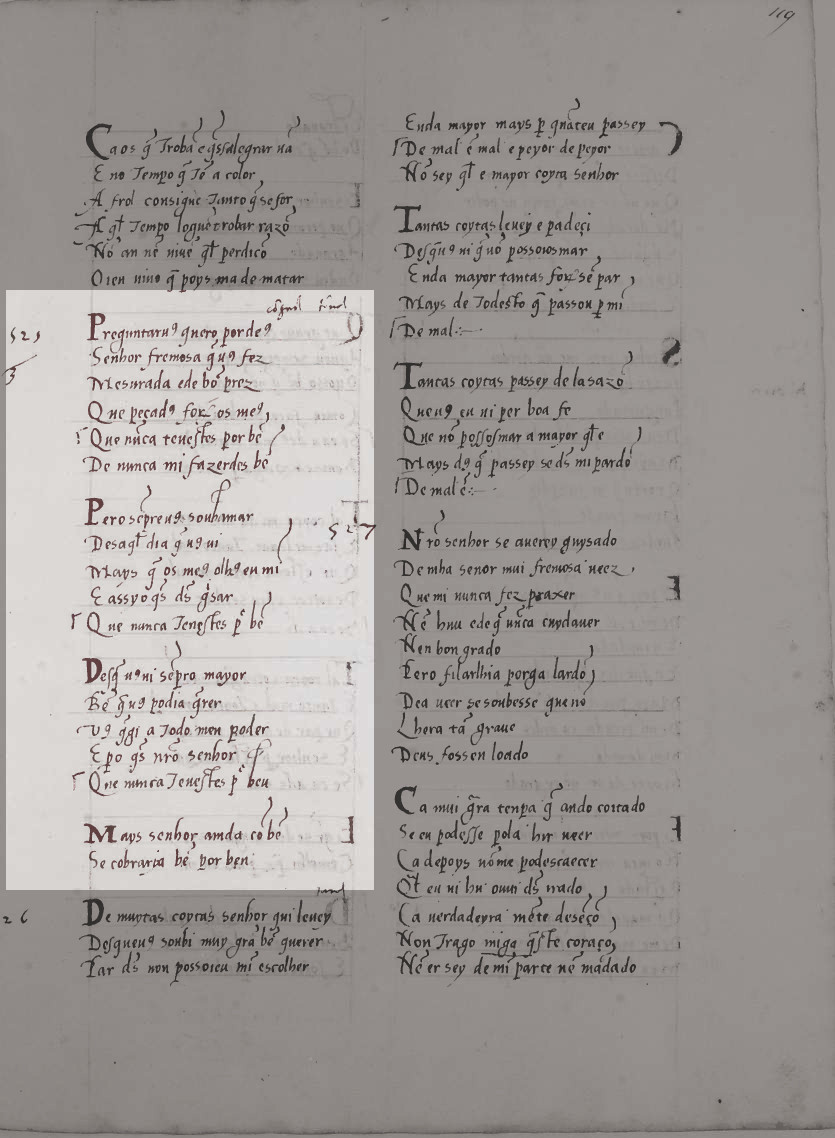 119
Ca os q̄ Trobã e q̄ss alegrar uã
E no Tempo q̄ Tẽ a color
A frol consigue Tanto q̄ sefor
A q̄l Tempo loguẽ trobar razõ
Nõ an nẽ niuẽ q̄l perdicõ
Oien uiuo q̄ poys ma de matar
525
3
cõgual tmel
Preguntaruꝯ quero por deꝯ
Senhor fremosa q̄ uꝯ fez
Mesurada e de bõ prez
Que pecadꝯ forõ os meꝯ
Que nũca teuestes por bẽ
De nunca mi fazerdes bẽ
Pero sẽpreuꝯ soub amar
Desaq̄l dia q̄ uꝯ ui
Mays q̄ os meꝯ olhꝯ en mi
E assy o q̄s ds̄ guisar
Que nunca Teuestes pʳ bẽ
Desq̄ uꝯ ui sẽpro mayor
Bẽ q̄ uꝯ podia q̄rer
Vꝯ q̄gi a Todo meu poder
E po q̄s nrõ senhor
Que nunca Teuestes pʳ beu
Mays senhor ainda cõ bẽ
Se cobraria bẽ por ben
26
tmel
De muytas coytas senhor qui leuey
Desqueuꝯ soubi muy grã bẽ querer
Par ds̄ non possoieu mi escolher
Enda mayor mays ꝑ quãteu passey
De mal ẽ mal e peyor de peyor
Nõ sey q̄l e mayor coyta senhor
Tantas coytas leuey e padeçi
Desq̄ uꝯ ui q̄ nõ possoiosmar
Enda mayor tantas forõ sẽ par
Mays de Todesto q̄ passou ꝑ mi
De mal
Tantas coytas passey de la sazõ
Queuꝯ eu ui per boa fe
Que nõ possosmar a mayor q̄l e
Mays dꝯ q̄ passey se ds̄ mi pardõ
De mal ẽ
527
Nrõ senhor se auerey guysado
De mha senor mui fremosa ueer
Que mi nunca fez praxer
Nẽ huu e de q̄ nũca cuydauer
Nen bon grado
Pero filarlhia porga lardõ
Dea ueer se soubesse que nõ
Lhera tã graue
Deus fossen loado
Ca mui grã tenpa q̄ ando coitado
Se eu podesse pola hir ueer
Ca depoys nõme podescaecer
Q̄l eu ui hu ouui ds̄ irado
Ca uerdadeyra mẽte desẽço
Non Trago migo q̄ste coraço
Nẽ er sey de mi parte nẽ mãdado